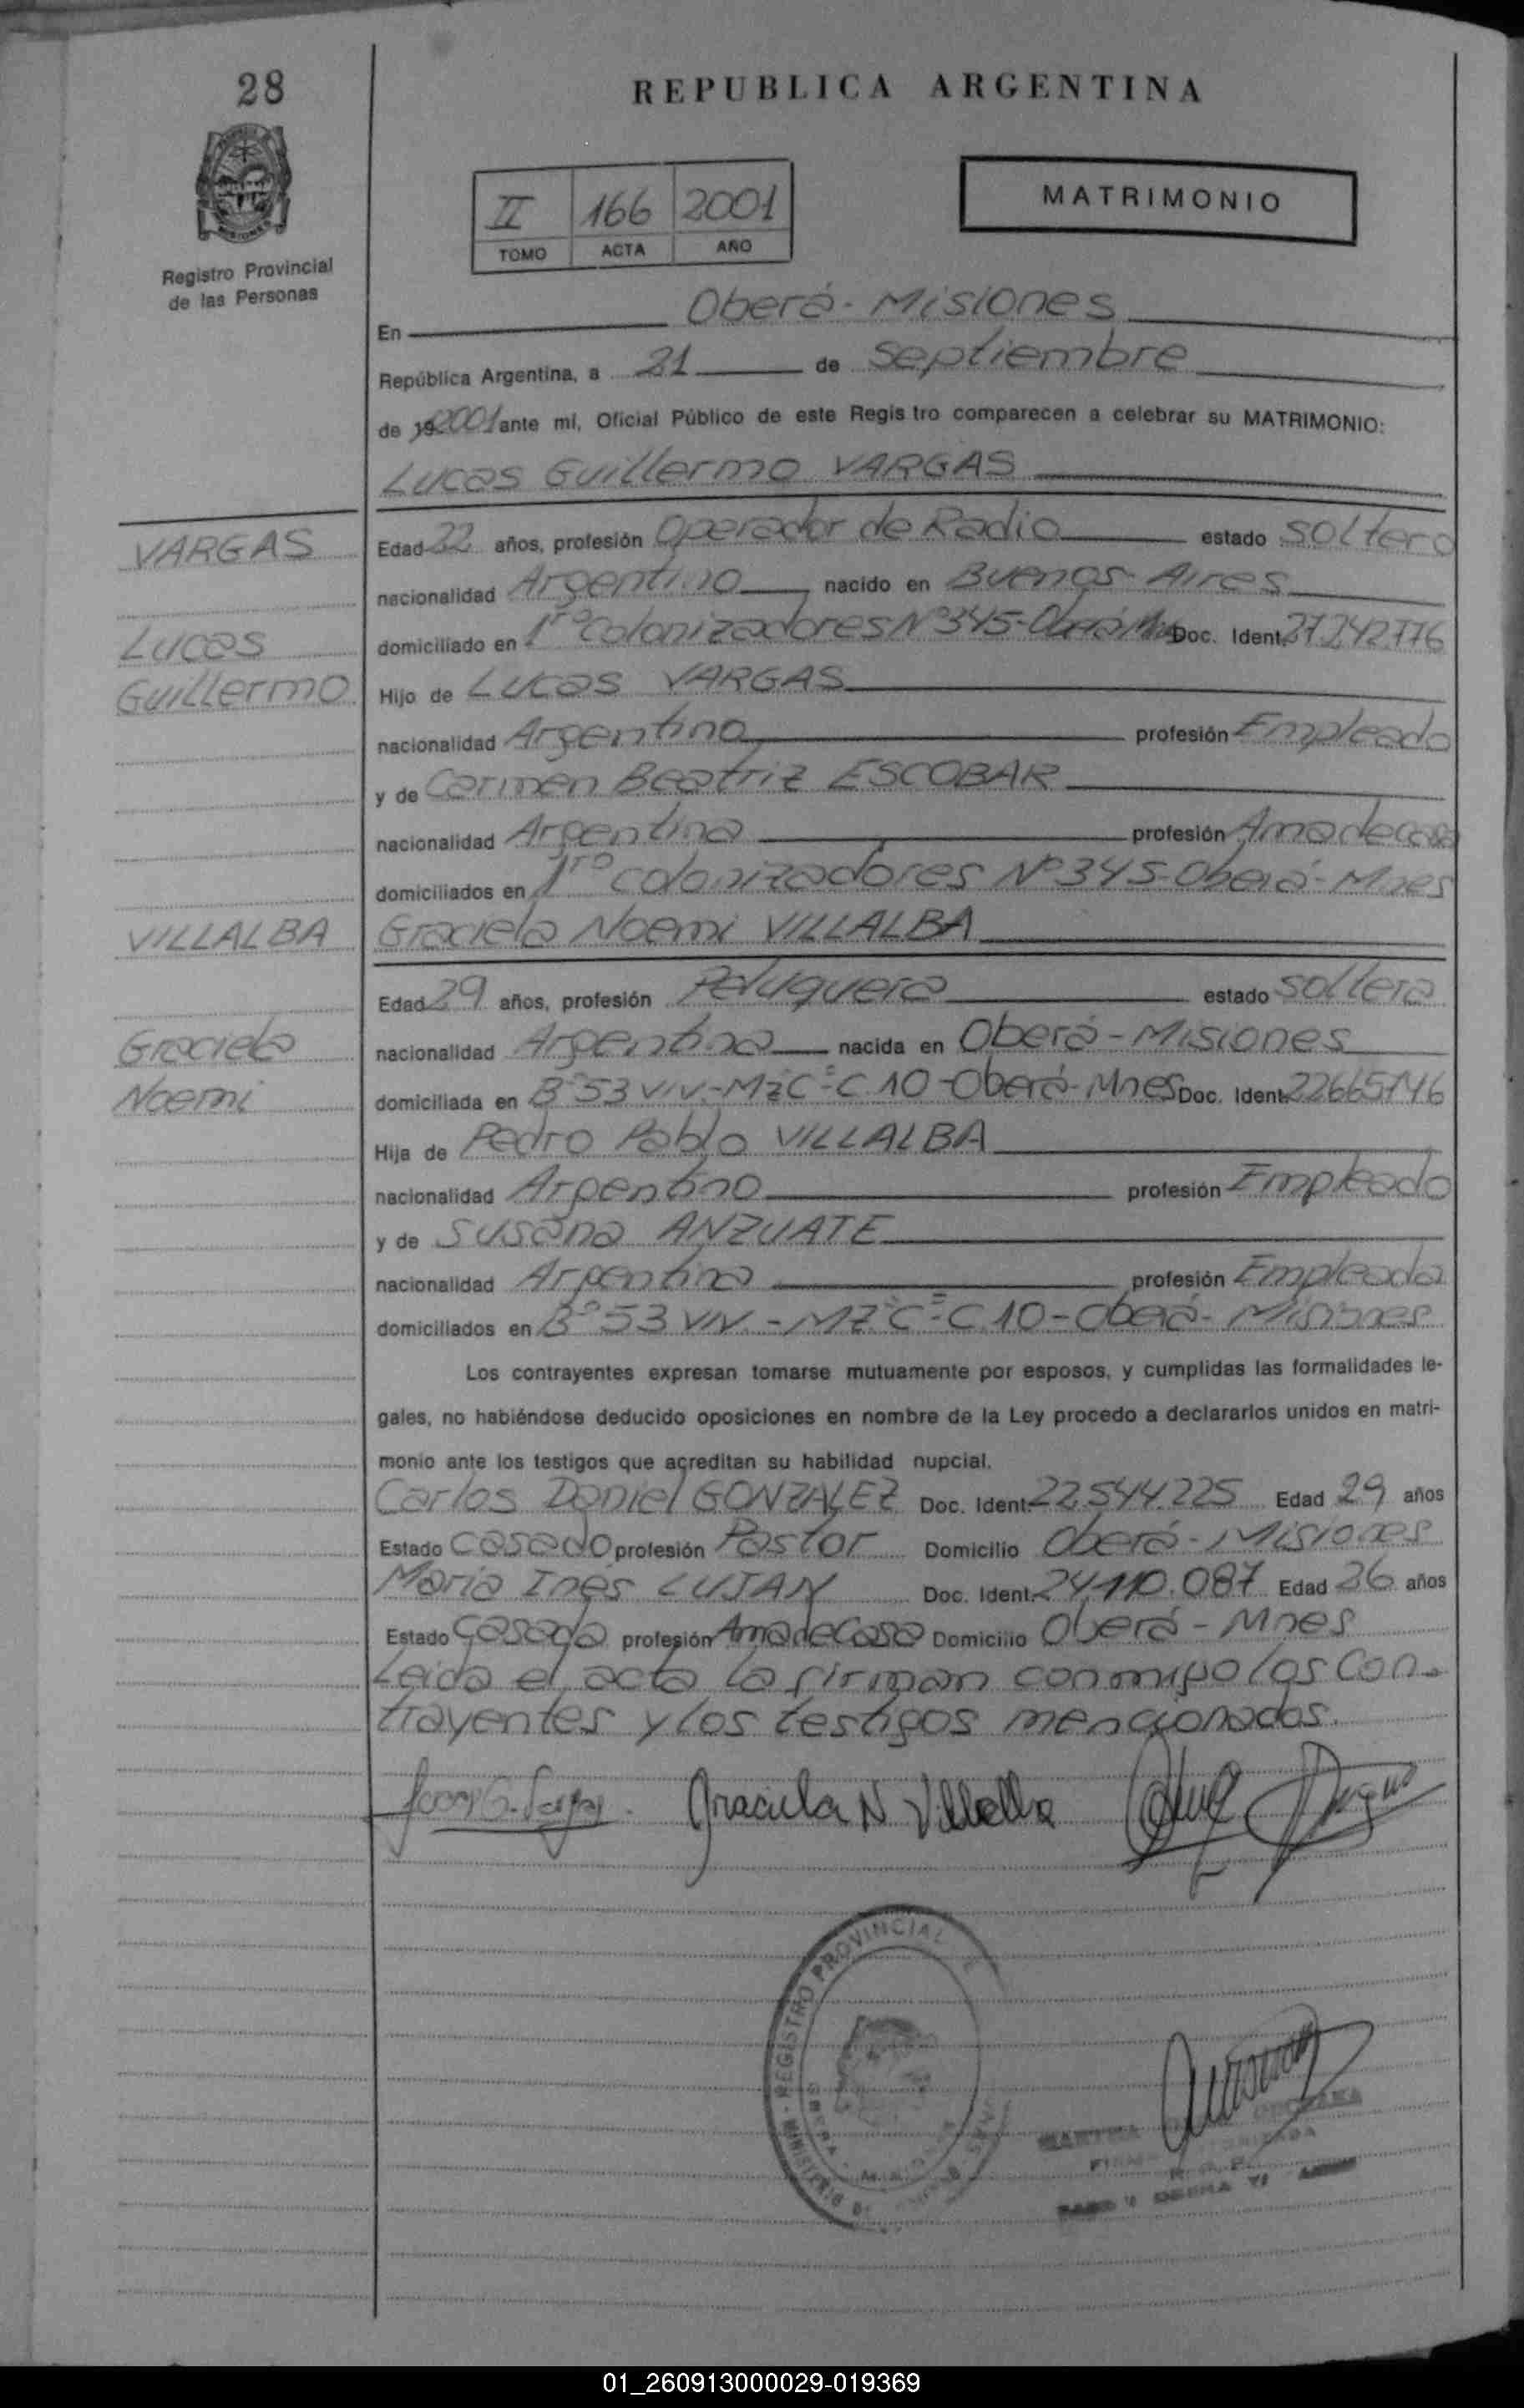 28
REPUBLICA ARGENTINA
II 166 2001
TOMO ACTA AÑO
MATRIMONIO
Registro Provincial
de las Personas
En Oberá - Misiones
República Argentina, a 21 de septiembre
de 192001 ante mí, Oficial Público de este Regis tro comparecen a celebrar su MATRIMONIO:
Lucas Guillermo VARGAS
VARGAS
Edad 22 años, profesión Operador de Radio estado soltero
nacionalidad Argentino nacido en Buenos Aires
Lucas
domiciliado en 1ro Colonizadores Nº 345-Oberá Doc. Ident.
Guillermo
Hijo de Lucas VARGAS
nacionalidad Argentino profesión Empleado
y de Carmen Beatriz ESCOBAR
nacionalidad Argentina profesión Ama de casa
domiciliados en 1ro colonizadores Nº 345-Oberá-Mnes
VILLALBA
Graciela Noemi VILLALBA
Edad 29 años, profesión Peluquera estado soltera
Graciela
nacionalidad Argentina nacida en Oberá - Misiones
Noemi
domiciliada en Bº 53 viv.-Mz"C"-C.10-Oberá-Mnes Doc. Ident. 22665146
Hija de Pedro Pablo VILLALBA
nacionalidad Argentino profesión Empleado
y de Susana ANZUATE
nacionalidad Argentina profesión Empleada
domiciliados en Bº 53 VIV.-MZ"C"-C.10-Oberá-Misiones
Los contrayentes expresan tomarse mutuamente por esposos, y cumplidas las formalidades le-
gales, no habiéndose deducido oposiciones en nombre de la Ley procedo a declararlos unidos en matri-
monio ante los testigos que acreditan su habilidad nupcial.
Carlos Daniel GONZALEZ Doc. Ident. 22.544.225 Edad 29 años
Estado casado profesión Pastor Domicilio Oberá - Misiones
Maria Inés LUJAN Doc. Ident. 24.110.087 Edad 26 años
Estado casada profesión Ama de Casa Domicilio Oberá - Mnes
Leida el acta la firman conmigo los con-
trayentes y los testigos mencionados.
Graciela N Villalba
REGISTRO PROVINCIAL
01_260913000029-019369